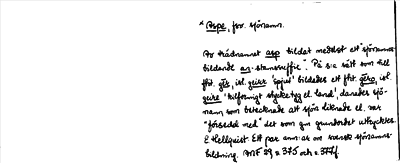 * Aspe, fsv. sjönamn.
Av trädnamnet asp bildat medelst ett "sjönamns-
bildande an-stamssuffix". På s:a sätt som till
fht. gēr, isl. geirr 'spjut' bildades ett fht. gēro, isl.
geire 'kilformigt stycke tyg el. land', danades sjö-
namn, som betecknade att sjön liknade el. var
"försedd med" det som gm grundordet uttrycktes.
E Hellquist Ett par ann. ar om svensk sjönamns-
bildning. ANF 29 s 375 och s 377f.